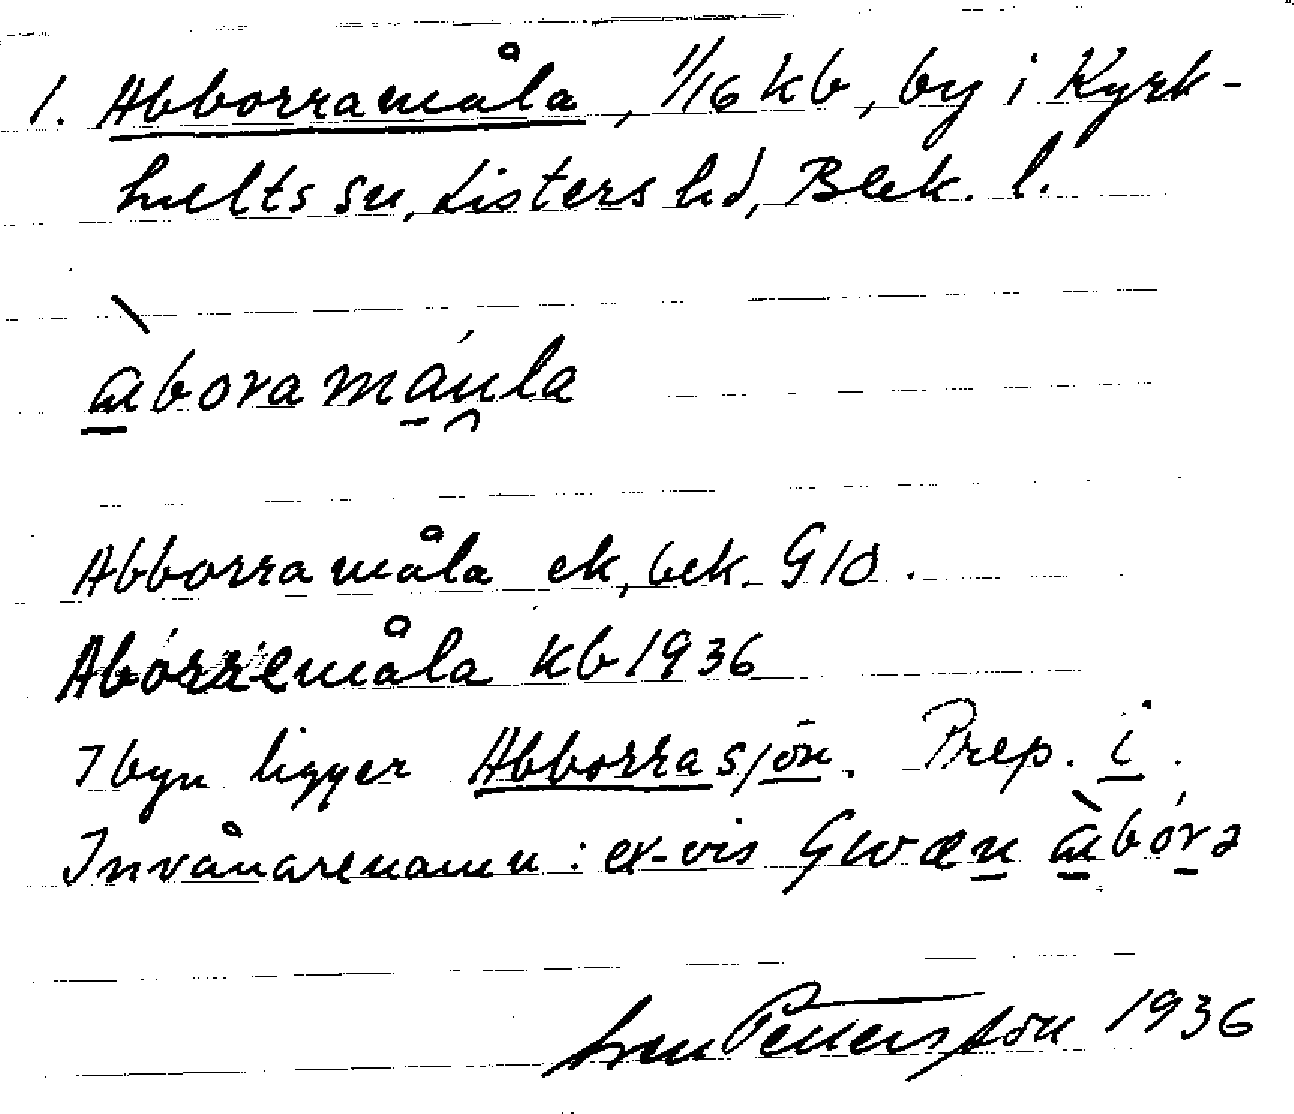 1. Abborramåla, 1/16 kb, by i Kyrk-
hults sn, Listers hd, Blek. l.
àboramáula
Abborramåla ek, bek. G10.
Abborremåla kb 1936
I byn ligger Abborrasjön. Prep. i.
Invånarenamn: ex-vis Gwæn àbórə
Sven Petterson 1936